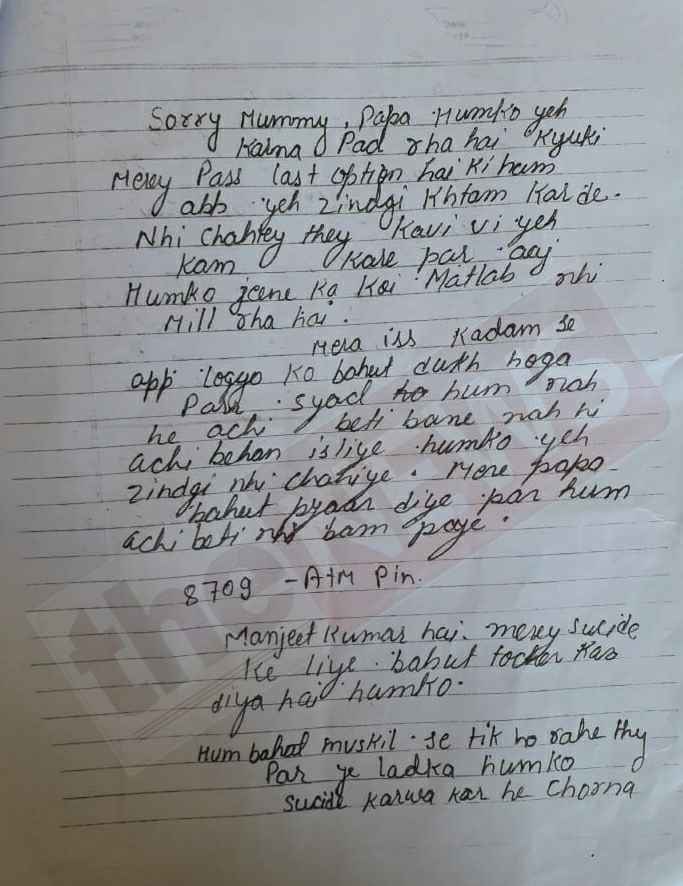 Sorry Mummy, Papa Humko yeh
Karna Pad rha hai Kyuki
Merey Pass last option hai Ki hum
abb yeh zindgi Khtam Kar de.
Nhi chahtey they Kavi vi yeh
Kam Kare par aaj
Humko jeene Ka Koi Matlab nhi
Mill rha hai.
Mera iss Kadam se
app logyo Ko bahut dukh hoga
Parr syad ho hum nah
he achi beti bane nah hi
achi behan isliye humko yeh
zindgi nhi chahiye. Mere papa
bahut pyaar diye par hum
achi beti nhi bam paye.
8709 - Atm Pin.
Manjeet Kumar hai. merey Sucide
Ke liye bahut
diya hai humko.
Hum bahut muskil se tik ho rahe thy
Par ye ladka humko
Sucide Karwa Kar he Chorna
the